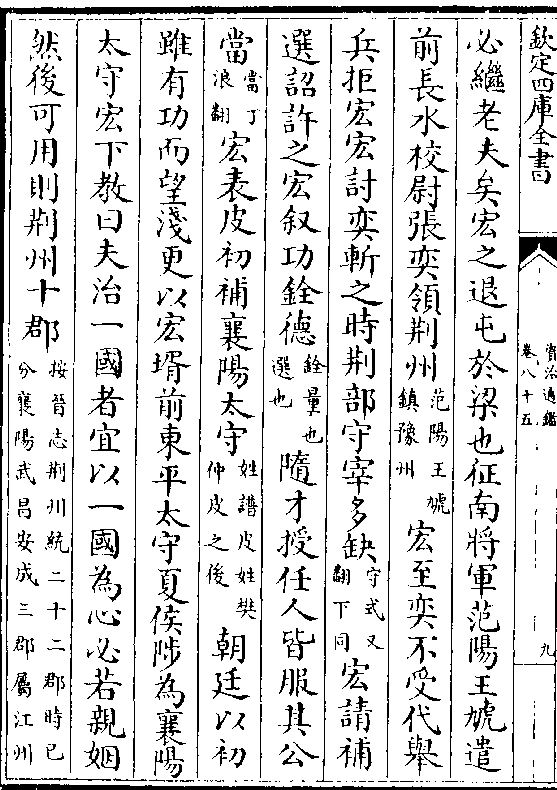 欽定四庫全書
資治通鑑
卷八十五
九
必繼老夫矣宏之退屯於梁也征南將軍范陽王虓遣
前長水校尉張奕領荆州范陽王虓鎮豫州宏至奕不受代舉
兵拒宏宏討奕斬之時荆部守宰多缺守式又翻下同宏請補
選詔許之宏叙功銓德銓量也選也隨才授任人皆服其公
當當丁浪翻宏表皮初補襄陽太守姓譜皮姓樊仲皮之後朝廷以初
雖有功而望淺更以宏壻前東平太守夏侯陟為襄陽
太守宏下教曰夫治一國者宜以一國為心必若親姻
然後可用則荆州十郡按晉志荆州統二十二郡時已分襄陽武昌安成三郡屬江州